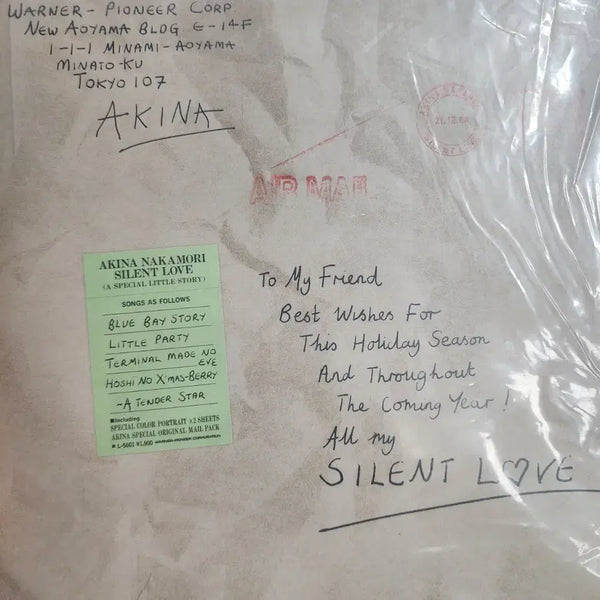 WARNER - PIONEER CORP.
NEW AOYAMA BLDG E-14F
1-1-1 MINAMI-AOYAMA
MINATO-KU
TOKYO 107
AKINA
21.12.84
AIR MAIL
AKINA NAKAMORI
SILENT LOVE
(A SPECIAL LITTLE STORY)
SONGS AS FOLLOWS
BLUE BAY STORY
LITTLE PARTY
TERMINAL MADE NO
EVE
HOSHI NO X'MAS-BERRY
-A TENDER STAR
■Including
SPECIAL COLOR PORTRAIT ×2 SHEETS
AKINA SPECIAL ORIGINAL MAIL PACK
■ L-5601 ¥1,900 WARNER-PIONEER CORPORATION
To My Friend
Best Wishes For
This Holiday Season
And Throughout
The Coming Year!
All my
SILENT L♡VE